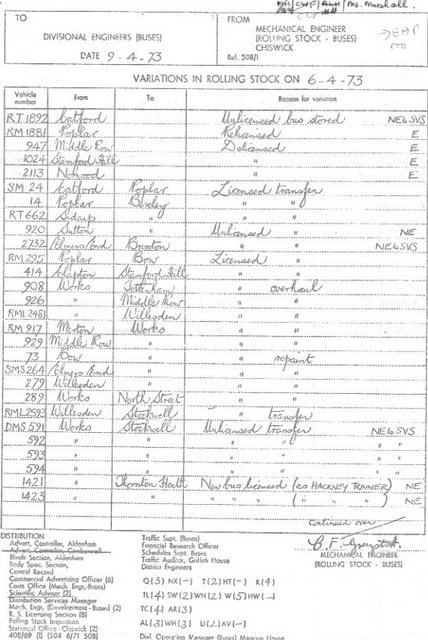 MA/CWF/ALH/Mr. Marshall.
TO
DIVISIONAL ENGINEERS (BUSES)
DATE 9-4-73
FROM
MECHANICAL ENGINEER
(ROLLING STOCK - BUSES)
CHISWICK
Ref. 508/1
VARIATIONS IN ROLLING STOCK ON 6-4-73
Vehicle number From To Reason for variation
RT 1892 Catford Unlicensed bus stored NE6SVS
RM 1881 Poplar Relicensed E
947 Middle Row Delicensed E
1024 Stamford Hill " E
2113 Norwood " E
SM 24 Catford Poplar Licensed transfer
14 Poplar Bexley " "
RT 662 Sidcup " " "
920 Sutton " Unlicensed " NE
2732 Elmers End Brixton " " NE6SVS
RM 295 Poplar Bow Licensed "
414 Clapton Stamford Hill " "
908 Works Tottenham " overhaul
926 " Middle Row " "
RML 2451 " Willesden " "
RM 917 Merton Works " "
929 Middle Row " " "
73 Bow " " repaint
SMS 264 Elmers End " " "
279 Willesden " " "
289 Works North Street " "
RML 2593 Willesden Stockwell " transfer
DMS 591 Works Stockwell Unlicensed transfer NE6SVS
592 " " " " " "
593 " " " " " "
594 " " " " " "
1421 " Thornton Heath New bus licensed (as HACKNEY TRAINER) NE
1423 " " " " " ( " " " ) NE
Continued over
MECHANICAL ENGINEER
(ROLLING STOCK - BUSES)
DISTRIBUTION
Advert. Controller, Aldenham
Advert. Controller, Camberwell
Blinds Section, Aldenham
Body Spec. Section,
Central Record
Commercial Advertising Officer (6)
Costs Office (Mech. Engr. Buses)
Scientific Adviser (2)
Distribution Services Manager
Mech. Engr. (Development - Buses) (2)
R. S. Licensing Section (8)
Rolling Stock Inspection
Statistical Office - Chiswick (2)
408/69 (1) (504 6/71 508)
Traffic Supt. (Buses)
Financial Research Officer
Schedules Supt. Buses
Traffic Auditor, Griffith House
District Engineers
Q(3) NX(-) T(2) HT(-) R(4)
TL(4) SW(2) WN(2) W(5) HW(-)
TC(4) AR(3)
AL(3) WH(3) U(2) AV(-)
Divl. Operating Manager (Buses) Manson House